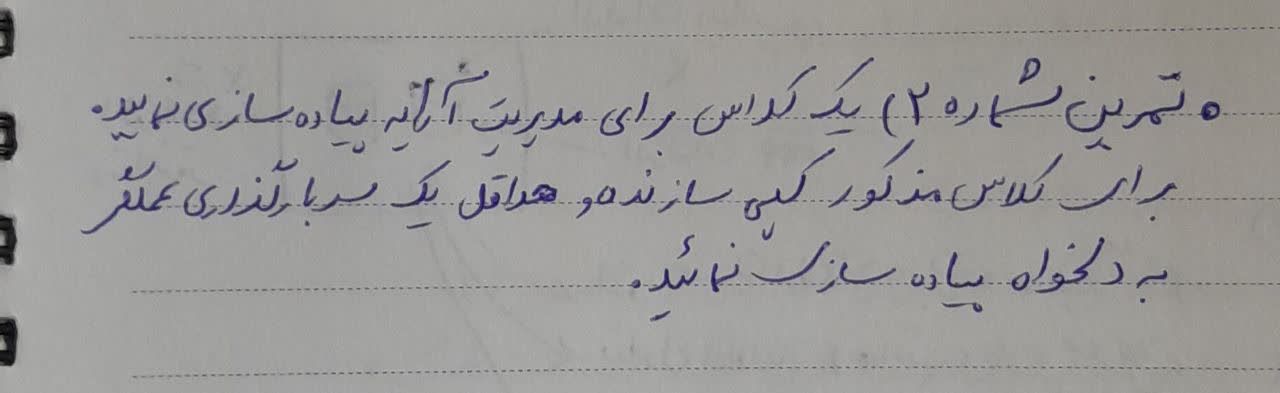 • تمرین شماره ۲) یک کلاس برای مدیریت آرایه پیاده سازی نمایید.
برای کلاس مذکور کپی سازنده و حداقل یک سربارگذاری عملگر
به دلخواه پیاده سازی نمائید.